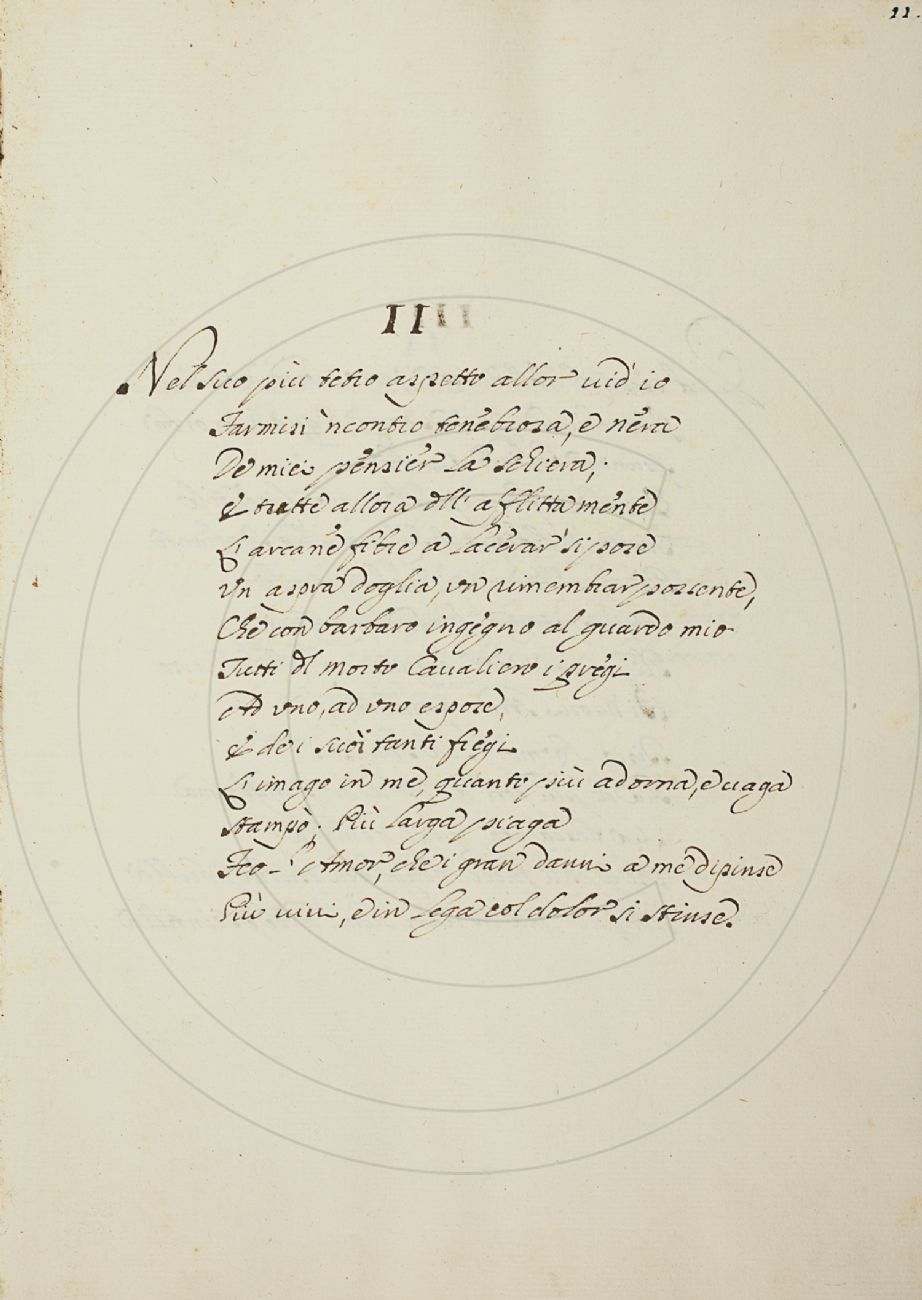 11.
II
Nel suo più tetro aspetto allor vid' io
Farmisi 'ncontro tenebrosa, e nera
De miei pensier la schiera;
E tratte allora dll' aflitta mente
L' arcane fibre a lacerar si pose
Un aspra doglia, un rimembrar possente,
Che con barbaro ingegno al guardo mio
Tutti dl morto Cavaliero i pregi
Ad uno, ad uno espose,
E de i suoi tanti fregi
L' imago in me, quanto più adorna, e vaga
Stampò; Più larga piaga
Feo l' Amor, che i gran danni a me dipinse
Più vivi, e in lega col dolor si strinse.